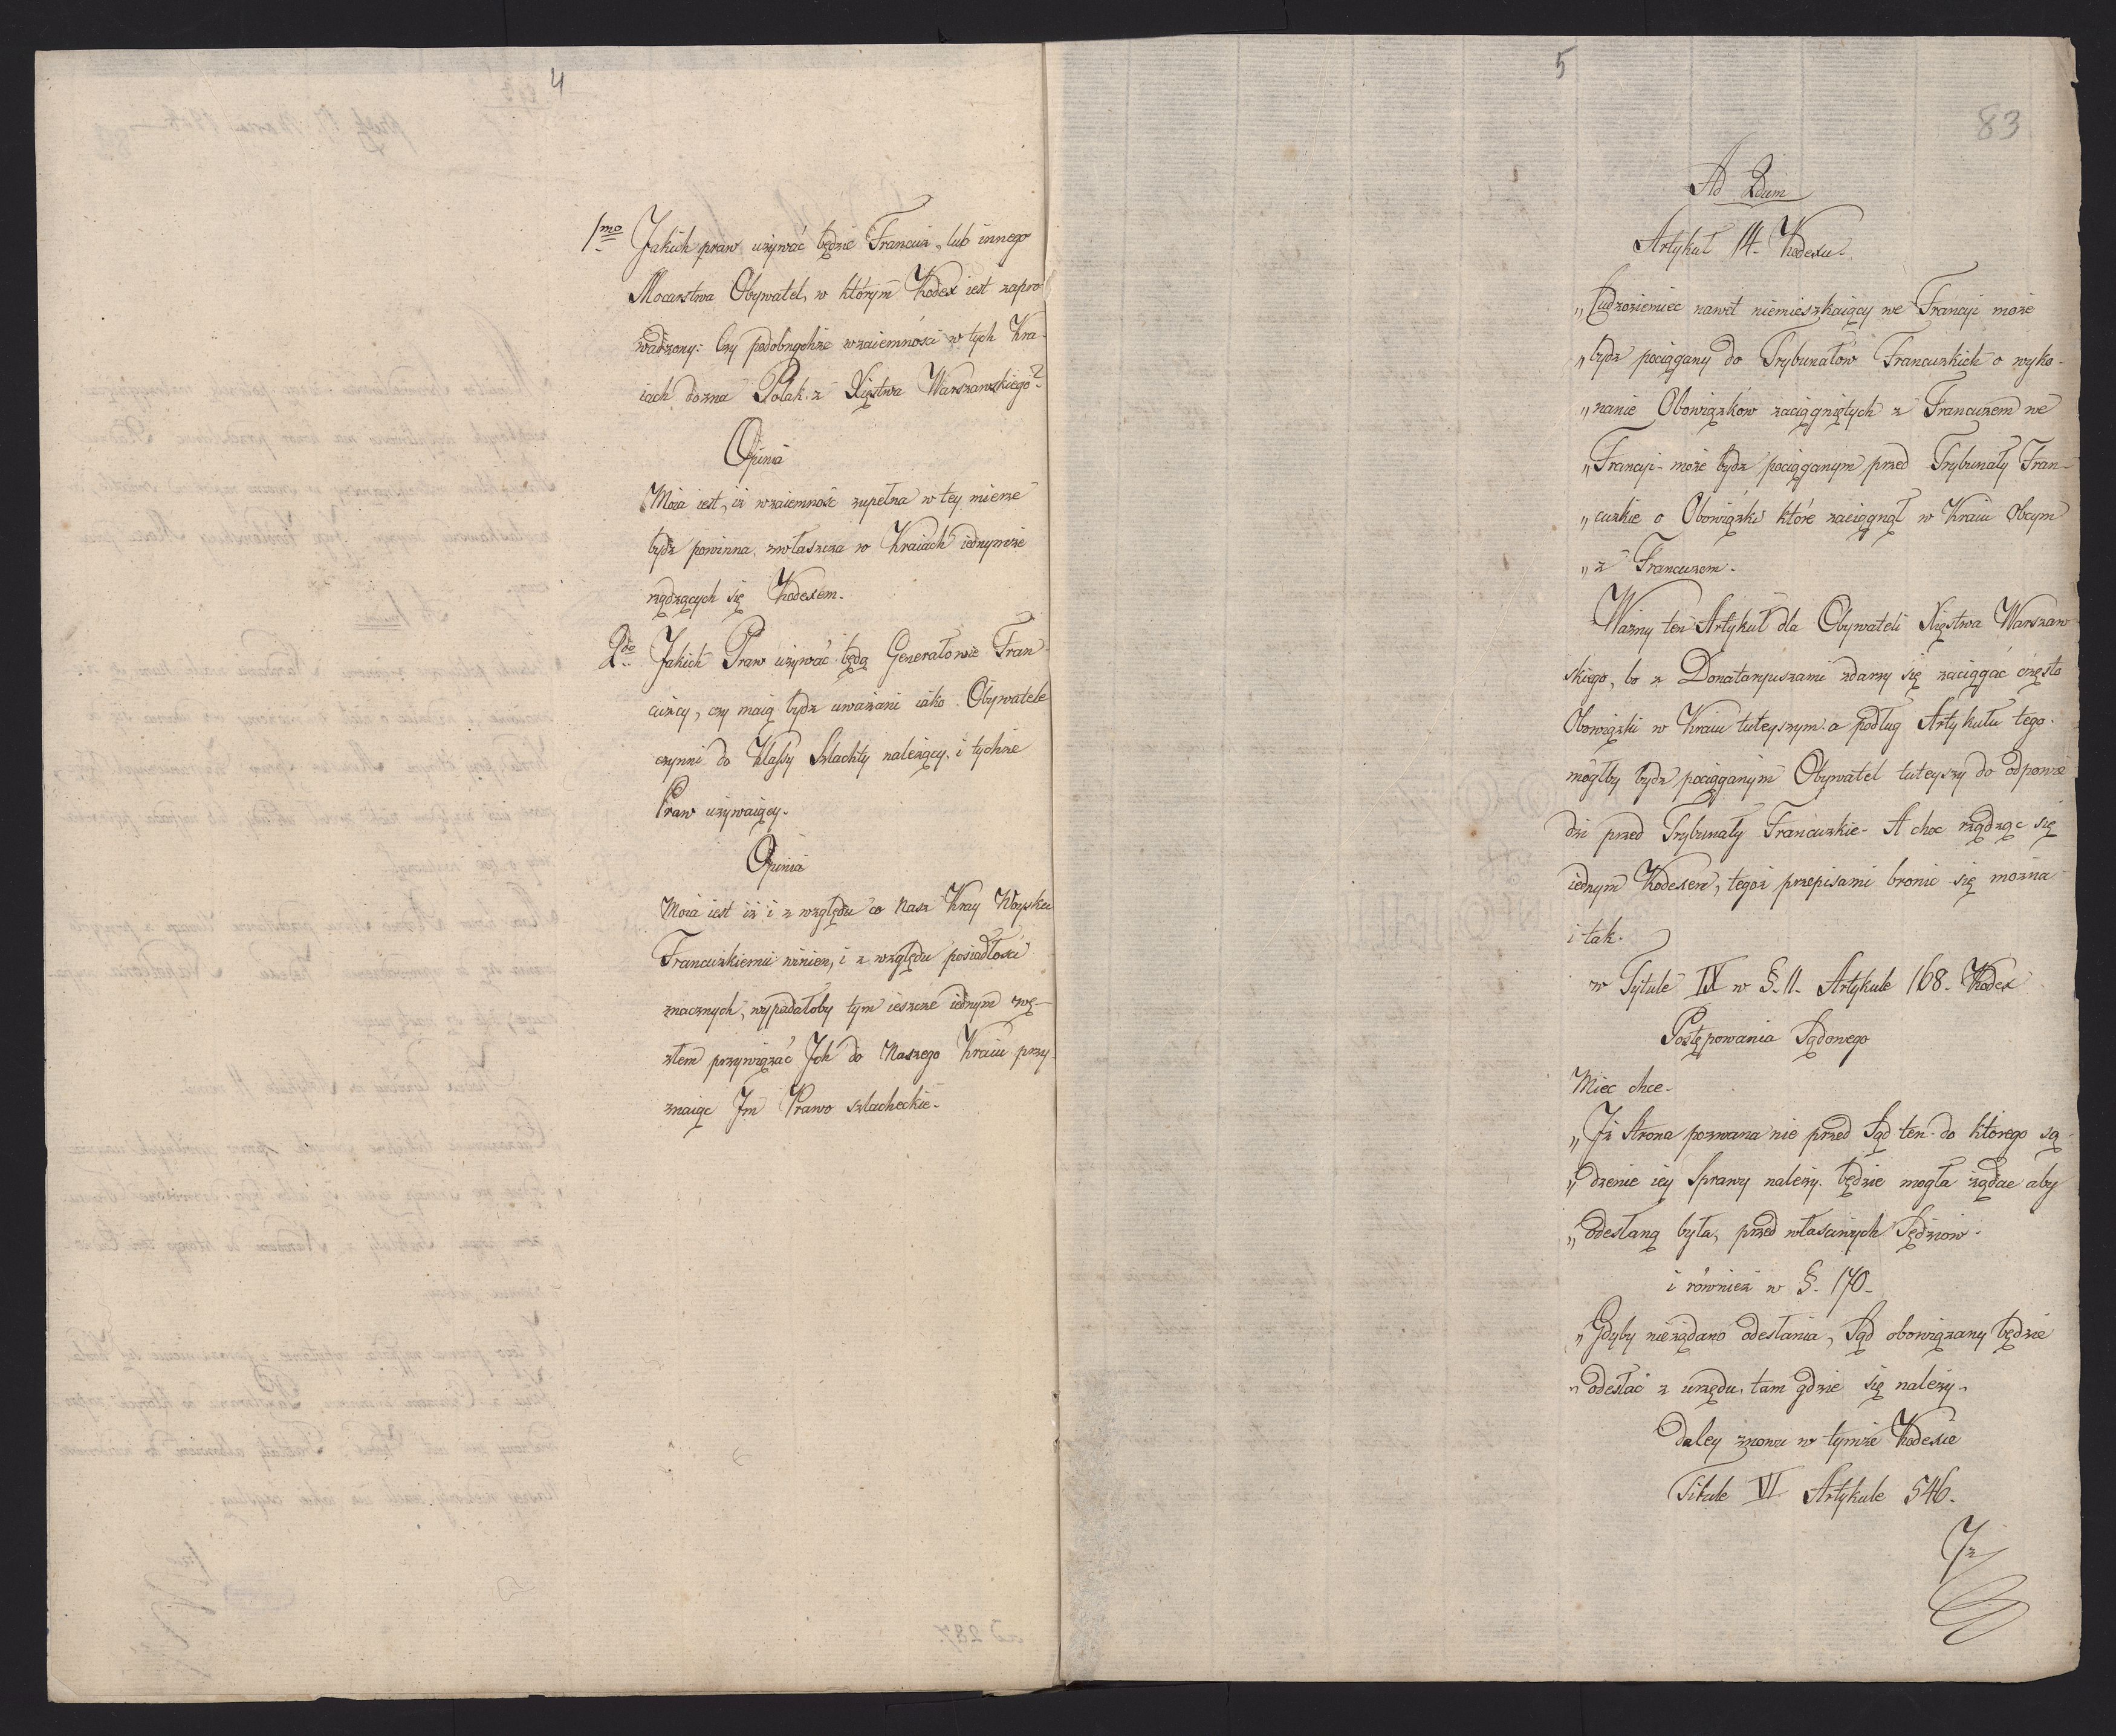 4
1mo Jakich praw używać będzie Francuz, lub innego
Mocarstwa Obywatel, w którym Kodex iest zapro
wadzony: Czy podobnychże wzaiemności w tych Kra-
iach dozna Polak z Xięstwa Warszawskiego?
Opinia
Moia iest, iż wzaiemność zupełna w tey mierze
bydz powinna, zwłaszcza w Kraiach iednymże
rządzących się Kodexem.
2do Jakich Praw używać będą Generałowie Fran
cuzcy, czy maią bydz uważani iako Obywatele
czynni do Klassy Szlachty należący, i tychże
Praw używaiący.
Opinia
Moia iest iż i z względu co Nasz Kray Woysku
Francuzkiemu winien, i z względu posiadłości
znacznych, wypadałoby tym ieszcze iednym wę-
złem przywiązać Ich do Naszego Kraiu przy-
znaiąc Im Prawo szlacheckie.
5
83
Ad 2dum
Artykuł 14. Kodexu.
„Cudzoziemiec nawet niemieszkaiący we Francyi może
„bydz pociągany do Trybunałów Francuzkich o wyko-
„nanie Obowiązków zaciągniętych z Francuzem we
„Francyi- może bydz pociąganym przed Trybunały Fran-
„cuzkie o Obowiązki które zaciągnął w Kraiu Obcym
„z Francuzem.
Ważny ten Artykuł dla Obywateli Xięstwa Warszaw
skiego, bo z Donataryuszami zdarzy się zaciągać często
Obowiązki w Kraiu tuteyszym a podług Artykułu tego
mógłby bydz pociąganym Obywatel tuteyszy do odpowie
dzi przed Trybunały Francuzkie- A choc rządząc się
iednym Kodexem, tegoż przepisami bronic się można
i tak.
w Tytule IX w §. 11. Artykule 168. Kodex
Postępowania Sądowego
Miec chce-
„Iż Strona pozwana nie przed Sąd ten do którego są
„dzenie iey Sprawy należy. będzie mogła żądac aby
„odesłaną była, przed własciwych Sędziow.
i również w §. 170.
„Gdyby nieżądano odesłania, Sąd obowiązany będzie
„odesłać z urzędu, tam gdzie się należy.
Daley znowu w tymże Kodexie
Titule VI Artykule 546.
Iż